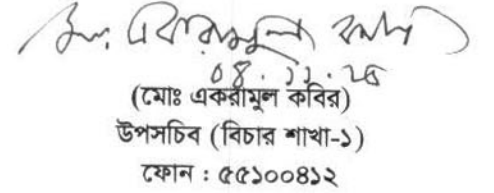 মোঃ একরামুল কবির
(মোঃ একরামুল কবির)
উপসচিব (বিচার শাখা-১)
ফোন : ৫৫১০০৪১২